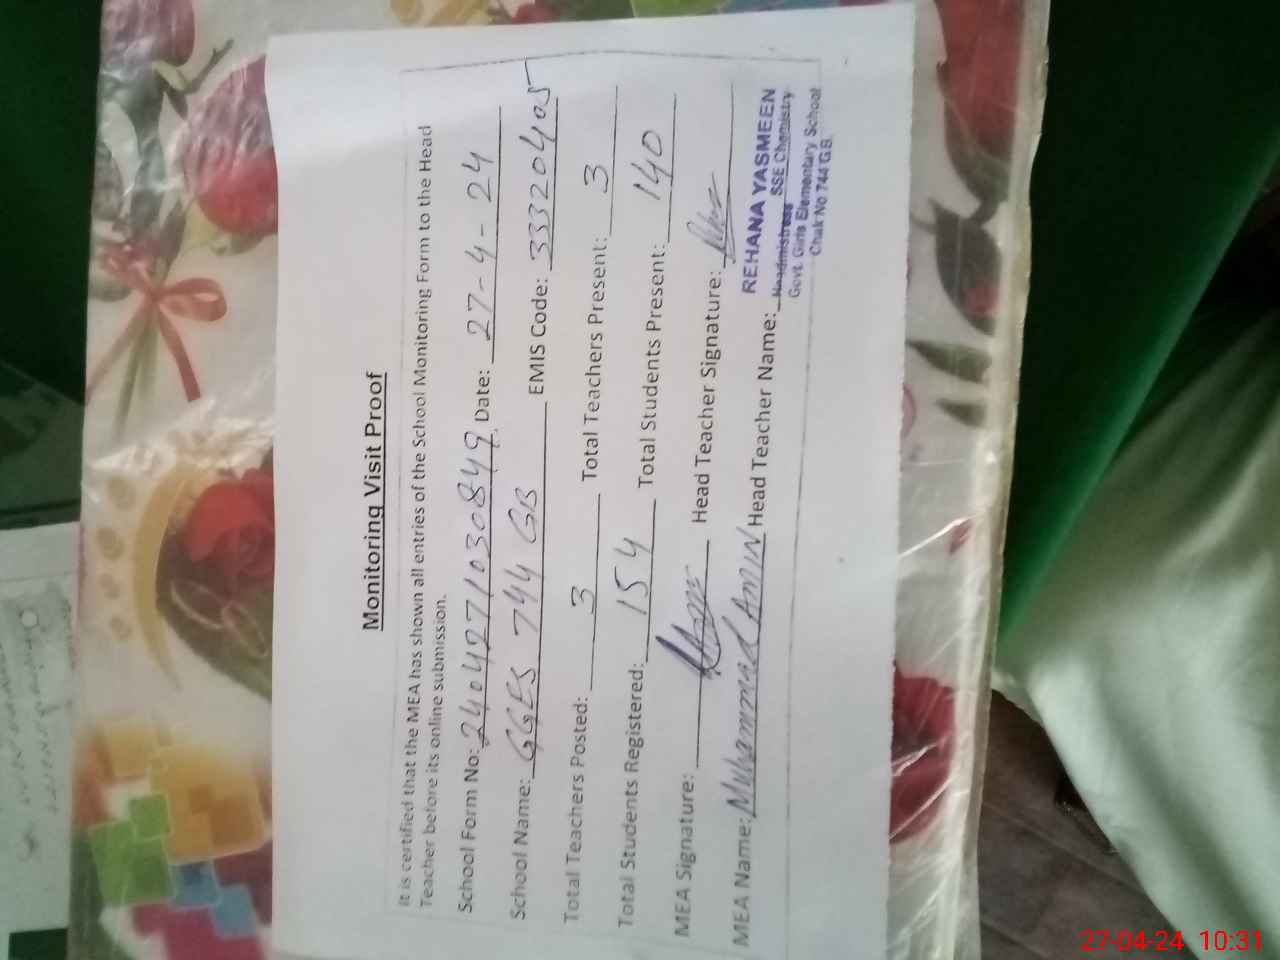 Monitoring Visit Proof
It is certified that the MEA has shown all entries of the School Monitoring Form to the Head
Teacher before its online submission.
School Form No: 2404271030849. Date: 27-4-24
School Name: GGES 744 GB EMIS Code: 33320405
Total Teachers Posted: 3 Total Teachers Present: 3
Total Students Registered: 154 Total Students Present: 140
MEA Signature: Head Teacher Signature:
MEA Name: Muhammad AMIN Head Teacher Name:
REHANA YASMEEN
Headmistress SSE Chemistry
Govt. Girls Elementary School
Chak No 744 GB
27-04-24 10:31